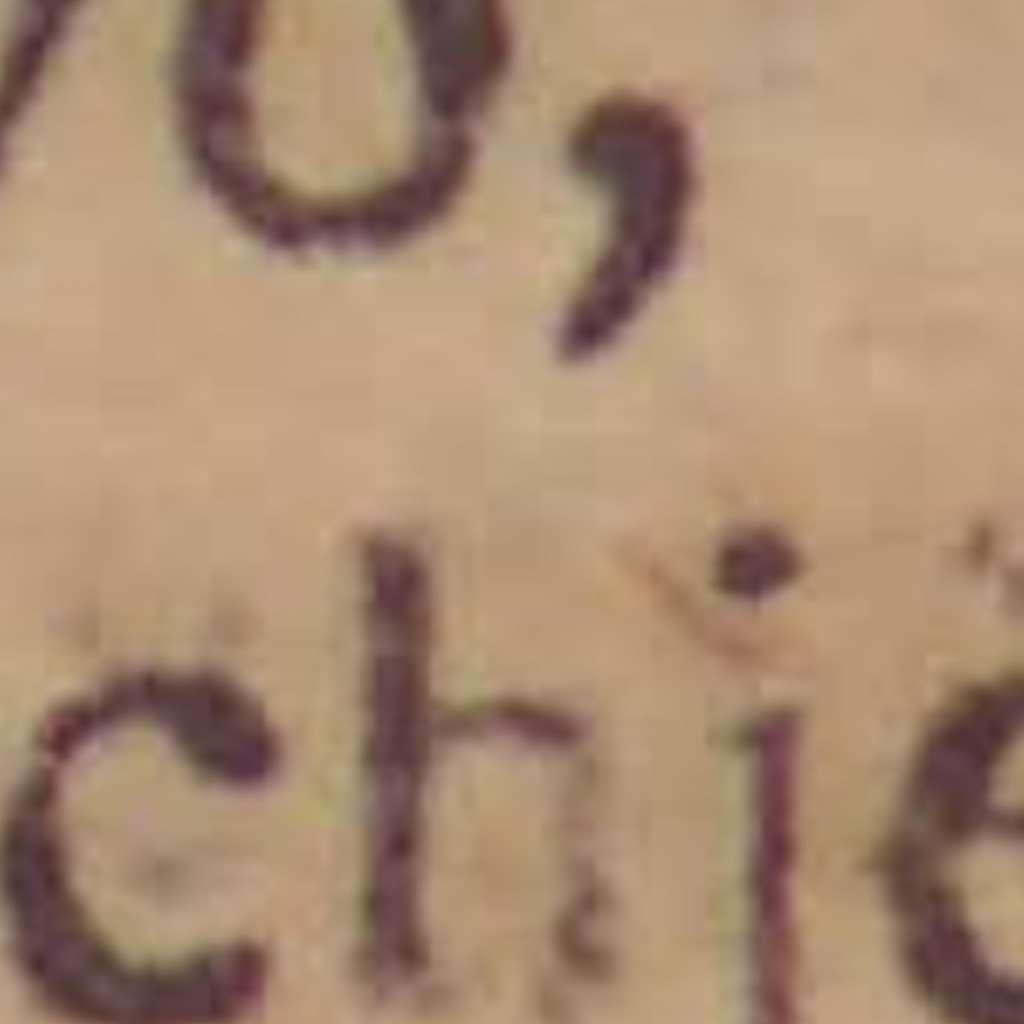 o,
chie